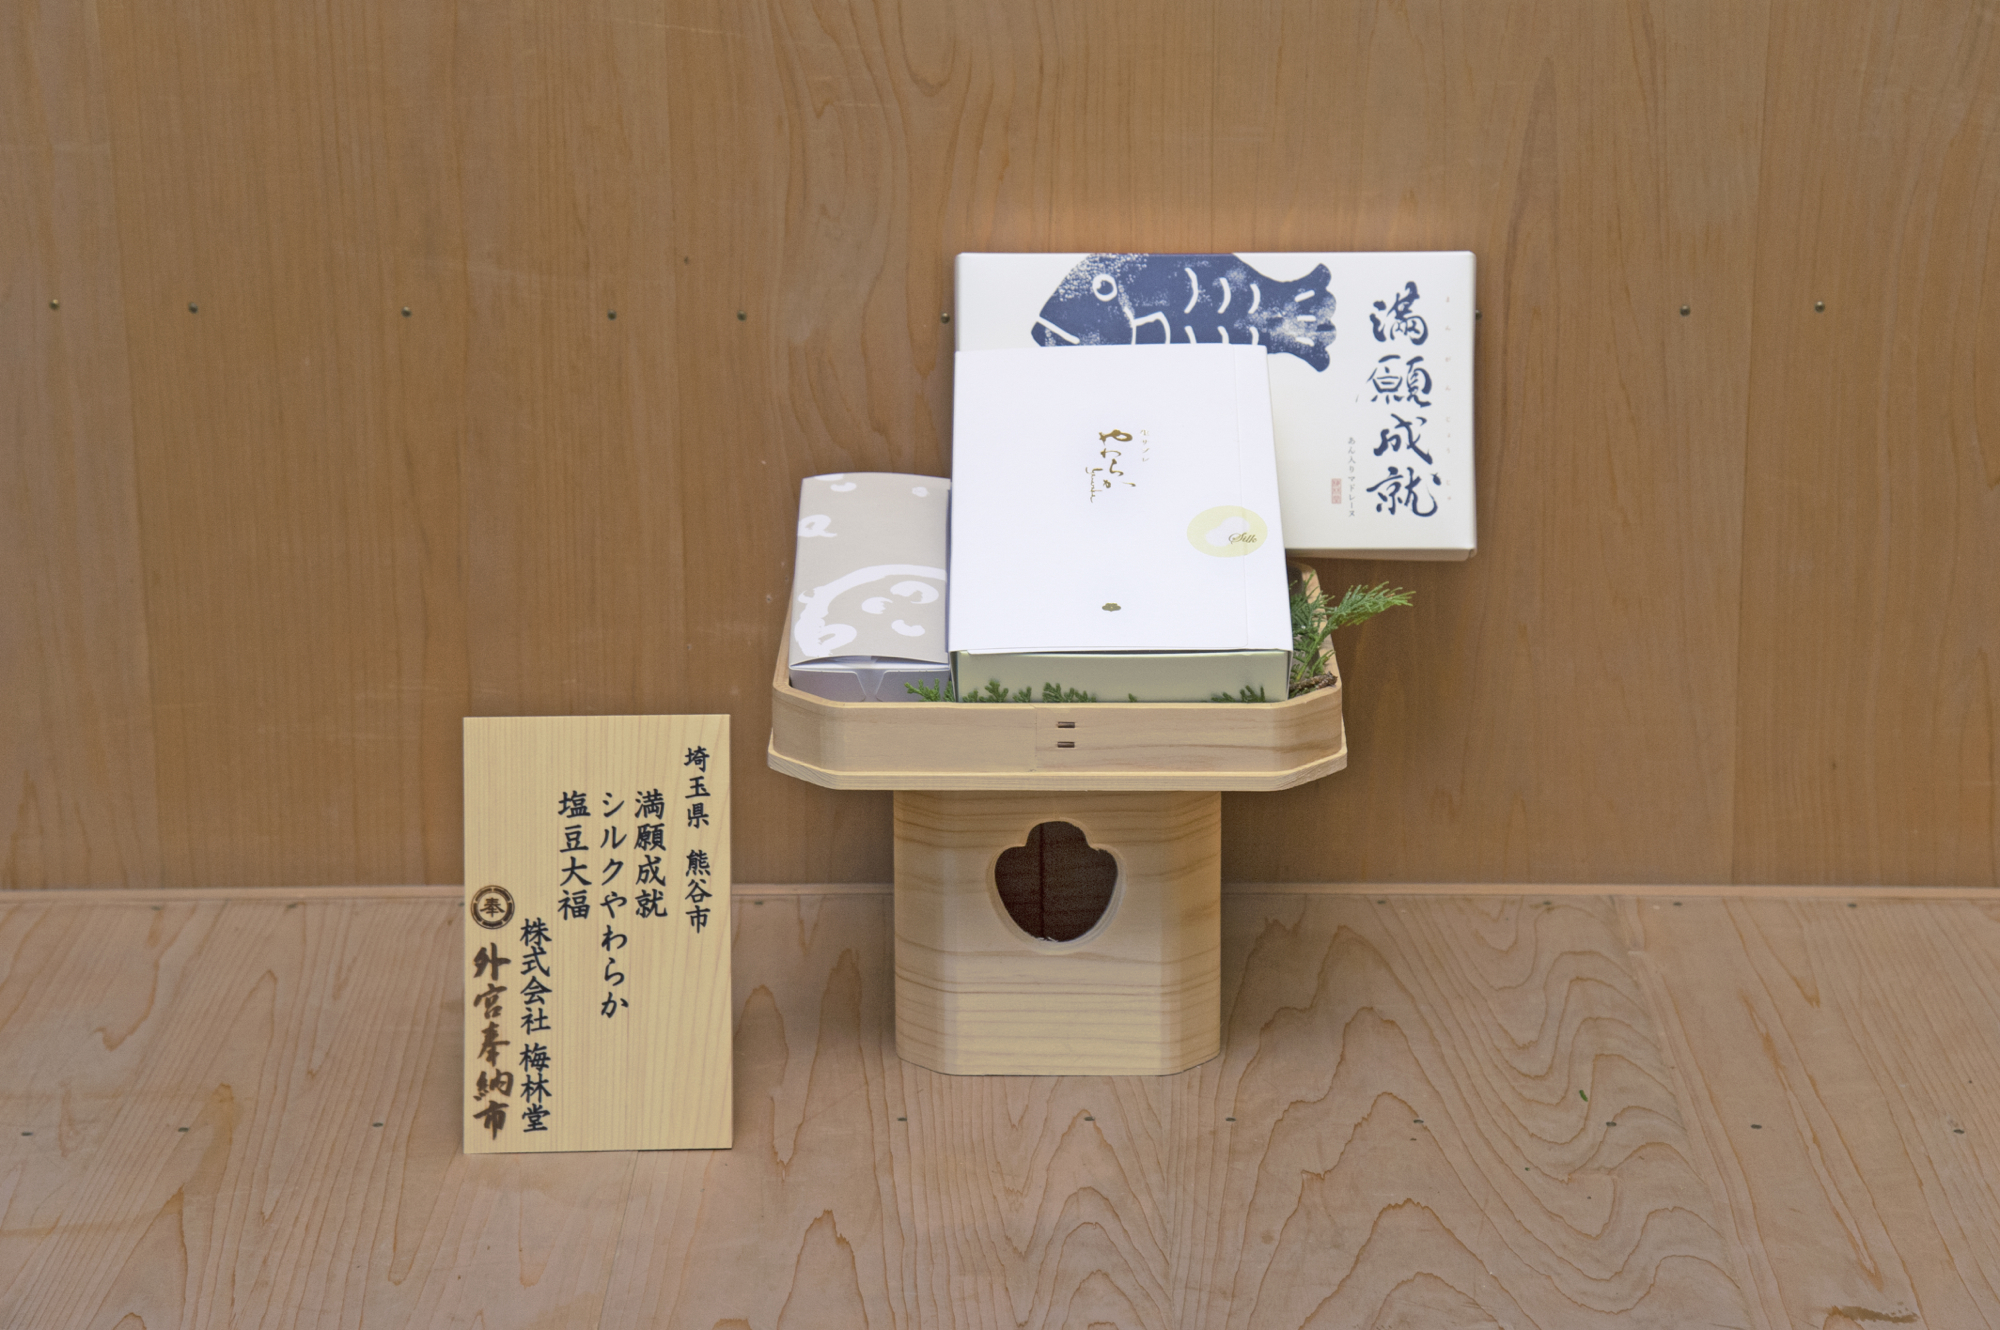 埼玉県 熊谷市
満願成就
シルクやわらか
塩豆大福
株式会社 梅林堂
奉
外宮奉納市
満願成就
まんがんじょうじゅ
あん入りマドレーヌ
やわらか
Silk